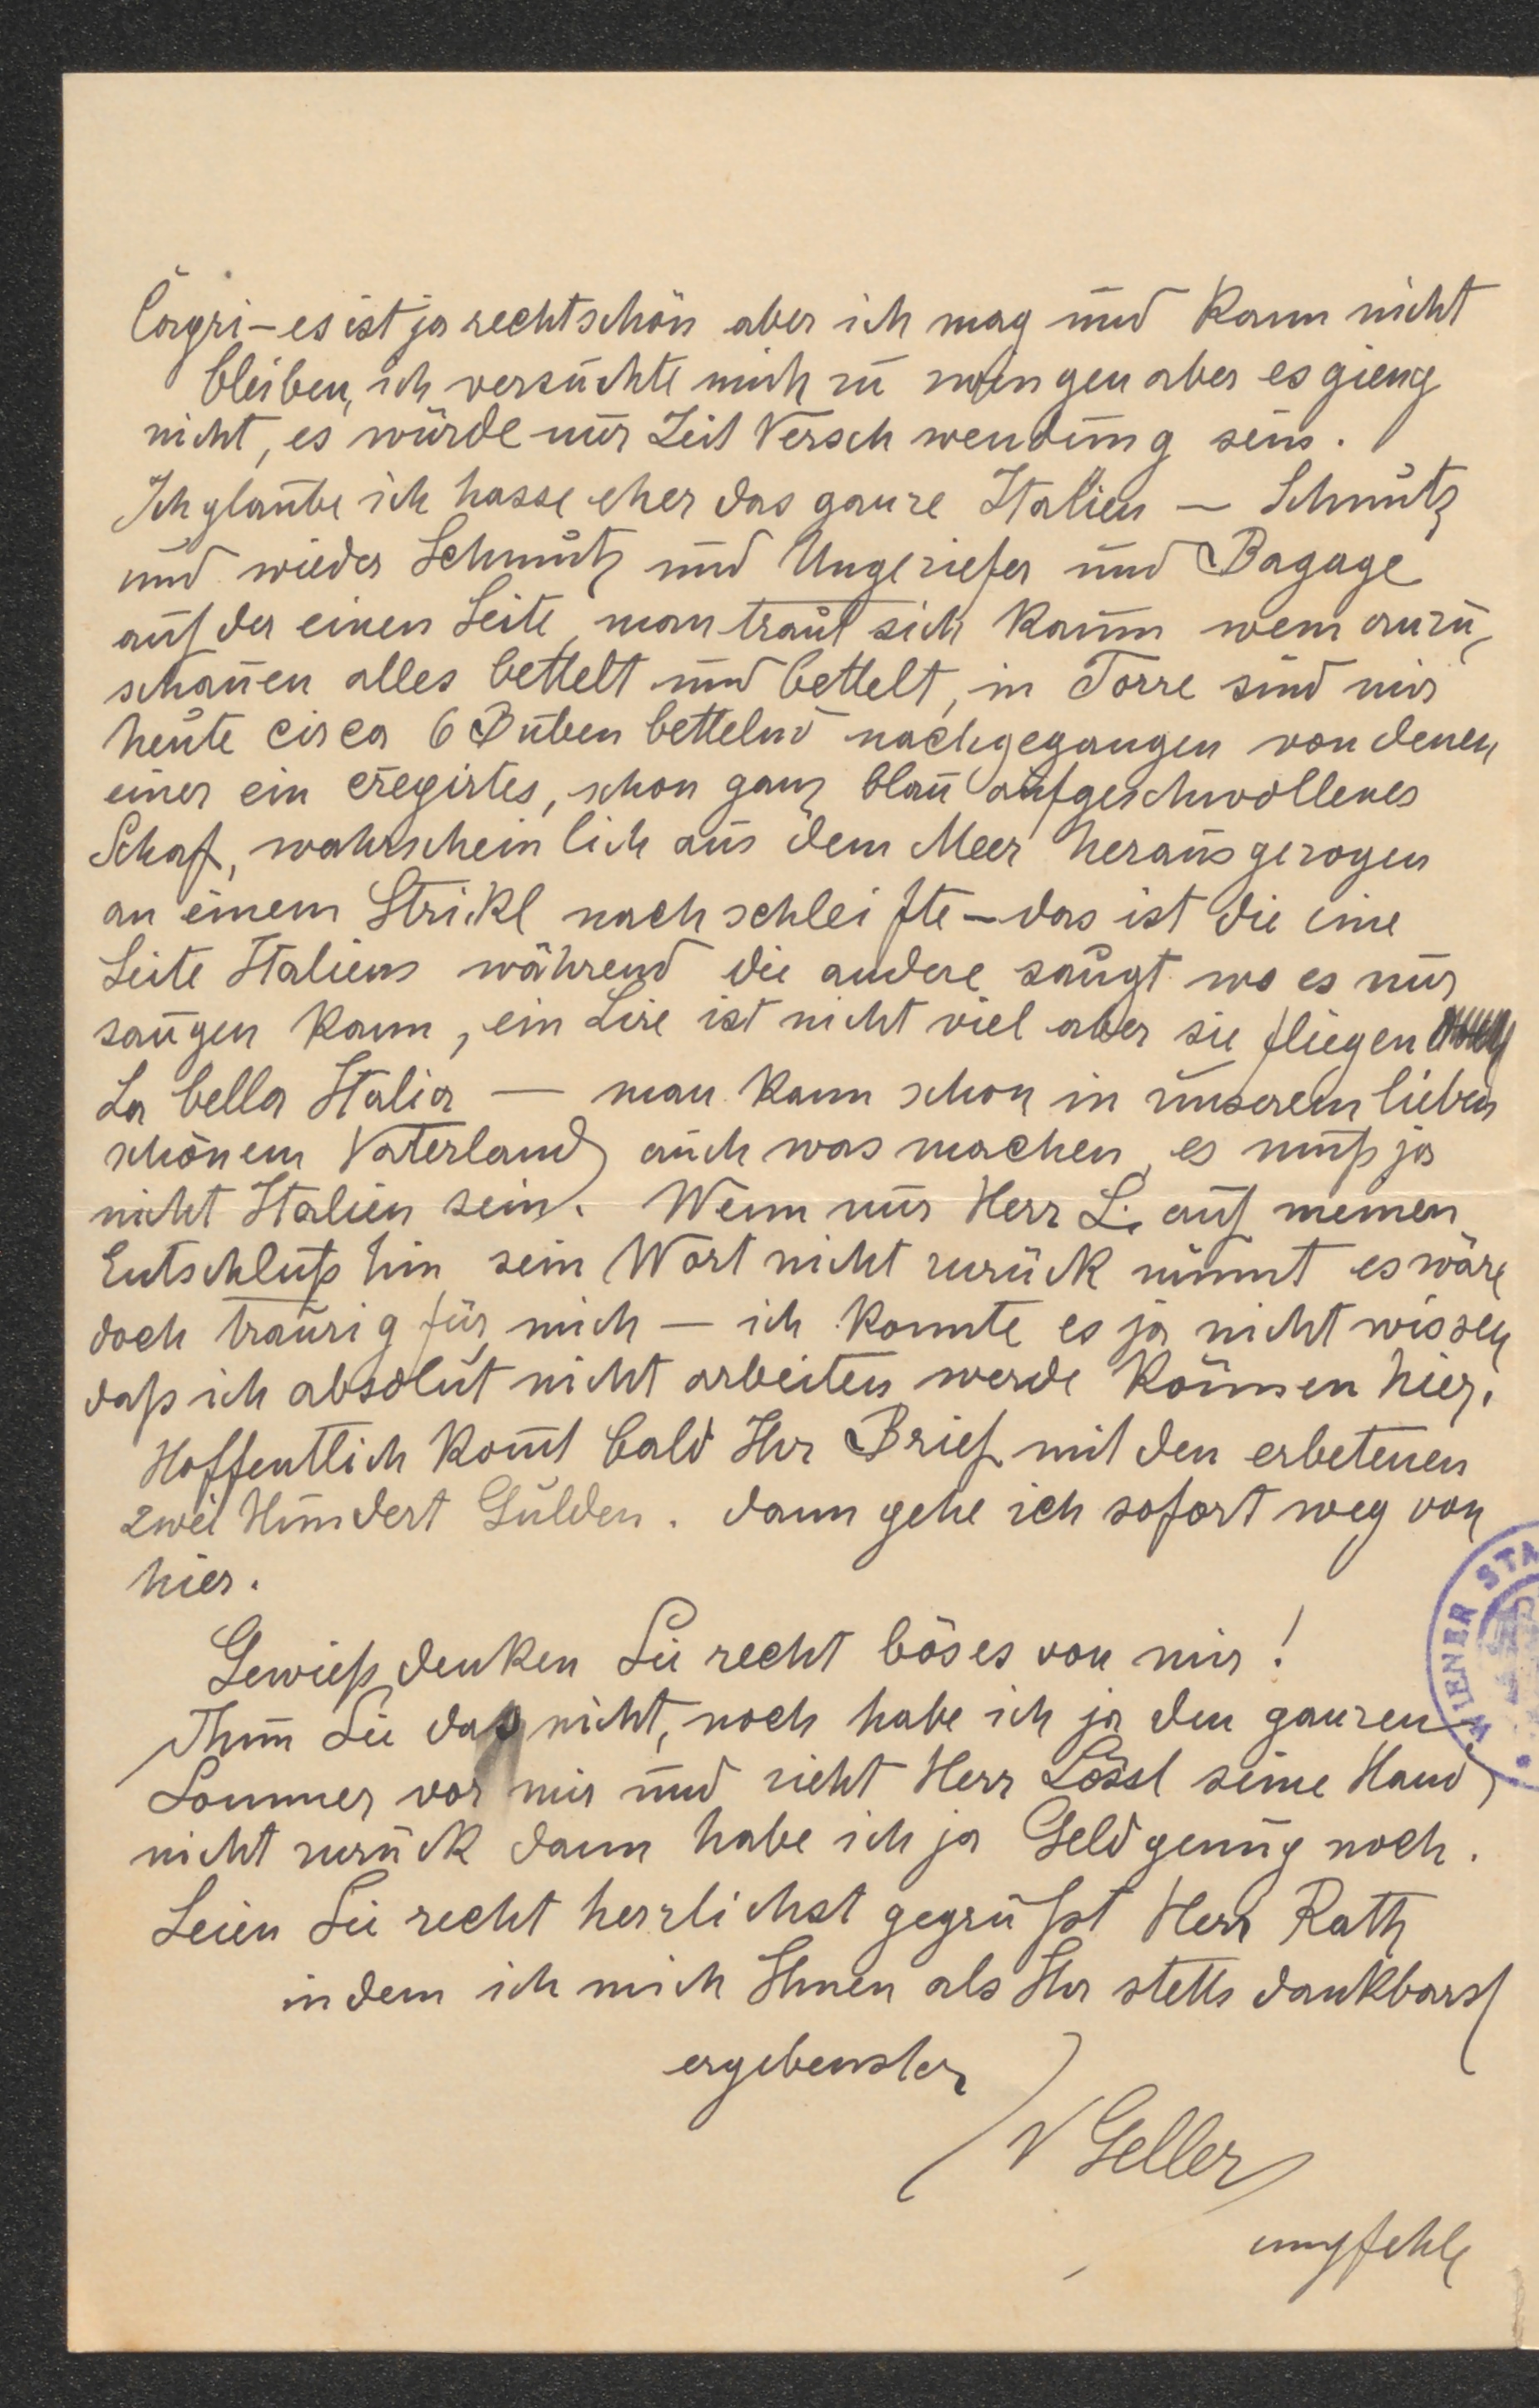 Capri – es ist ja recht schön aber ich mag und kann nicht
bleiben, ich versuchte mich zu zwingen aber es gieng
nicht, es würde nur Zeit Verschwendung sein.
Ich glaube ich hasse eher das ganze Italien – Schmutz
und wieder Schmutz und Ungeziefer und Bagage
auf der einen Seite, man traut sich kaum wem anzu-
schauen alles bettelt und bettelt, in Torre sind mir
heute circa 6 Buben bettelnd nachgegangen von denen
einer ein cregirtes, schon ganz blau aufgeschwollenes
Schaf, wahrscheinlich aus dem Meer herausgezogen
an einem Strikl nachschleifte – das ist die eine
Seite Italiens während die andere saugt wo es nur
saugen kann, ein Lire ist nicht viel aber sie fliegen
La bella Italia — man kann schon in unserem lieben
schönem Vaterland auch was machen, es muß ja
nicht Italien sein. Wenn nur Herr L. auf meinen
Entschluß hin sein Wort nicht zurück nimmt es wäre
doch traurig für mich – ich konnte es ja nicht wissen
daß ich absolut nicht arbeiten werde können hier.
Hoffentlich kom̄t bald Ihr Brief mit den erbetenen
zwei Hundert Gulden. dann gehe ich sofort weg von
hier.
Gewieß denken Sie recht böses von mir!
Thun Sie das nicht, noch habe ich ja den ganzen
Sommer vor mir und zieht Herr Lössl seine Hand
nicht zurück dann habe ich ja Geld genug noch.
Seien Sie recht herzlichst gegrüßt Herr Rath
in dem ich mich Ihnen als Ihr stetts dankbarst
ergebenster
Geller
empfehle
WIENER STA